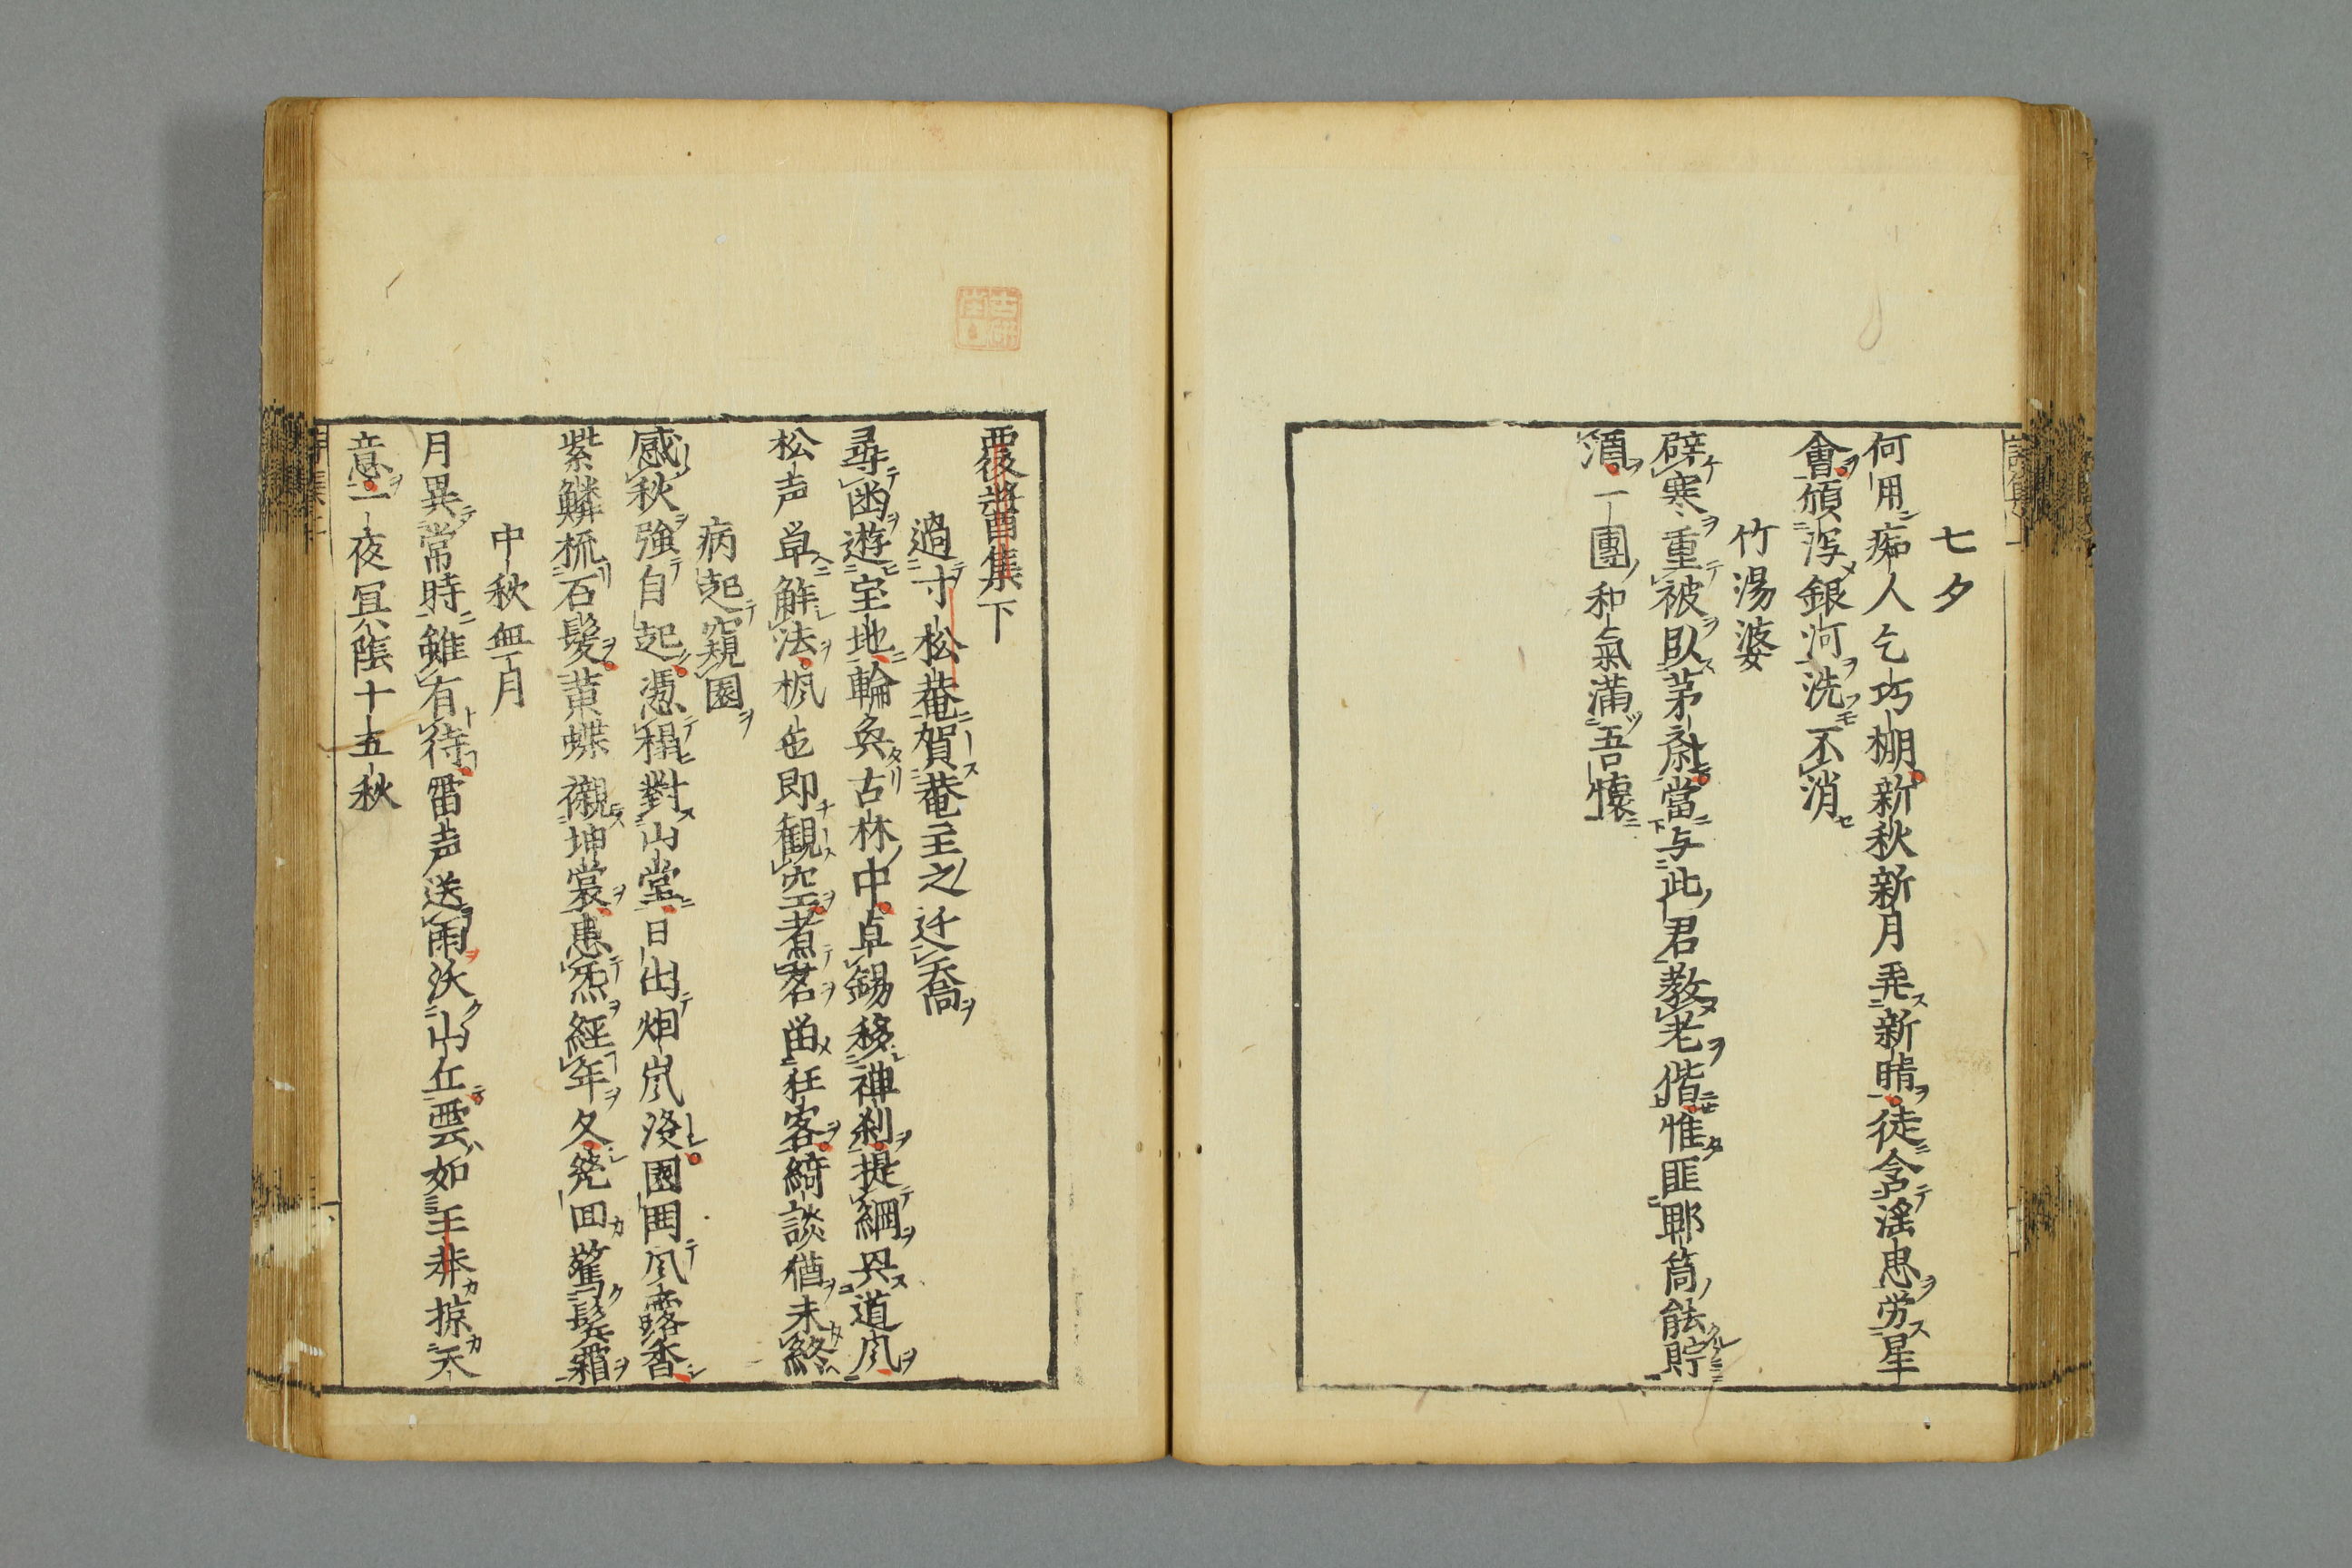 七夕
何用痴人乞巧棚新秋新月弄新晴徒含淫思労星
會傾瀉銀河洗不消
竹湯婆
辟寒重被臥茅齋當与此君教老偕惟匪耶筒能貯
酒一團和氣滿吾懷
覆醬集下
過寸松菴賀菴主之迁喬
尋幽遊宝地輪奐古林中卓錫移神刹提綱興道風
松声単解法楓色即観空煮茗留狂客綺談猶未終
病起窺園
感秋強自起憑榻對山堂日出烟嵐没園開風露香
紫鱗梳石髪黄蝶襯坤裳患炁經年久筇回驚鬢霜
中秋無月
月異常時雖有待雷声送雨沃山丘雲如王莽掠天
意一夜冥陰十五秋